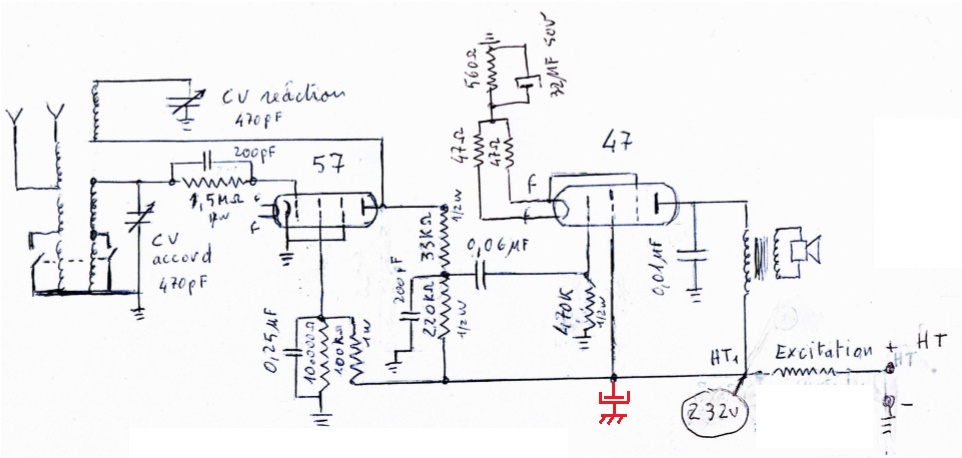 CV réaction
470pF
200pF
57
1,5MΩ
1/4W
F
F
CV
accord
470pF
0,25µF
10.000Ω
100KΩ
1W
33KΩ
1/2W
200pF
220KΩ
1/2W
0,06µF
560Ω
32µF 50V
47Ω
47Ω
47
F
F
470K
1/2W
0,01µF
HT1
Excitation
+ HT
HT
-
232v